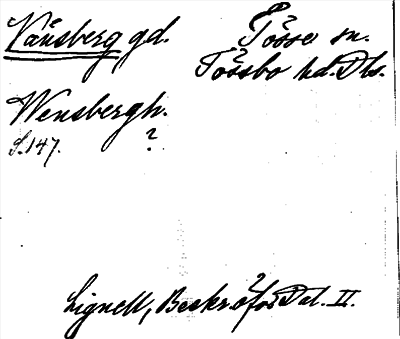 Vänsberg gd. Tösse sn.
Tössbo hd. Dls.
Wensbergh.
S. 147. ?
Lignell, Beskr. öfver Dal. II.